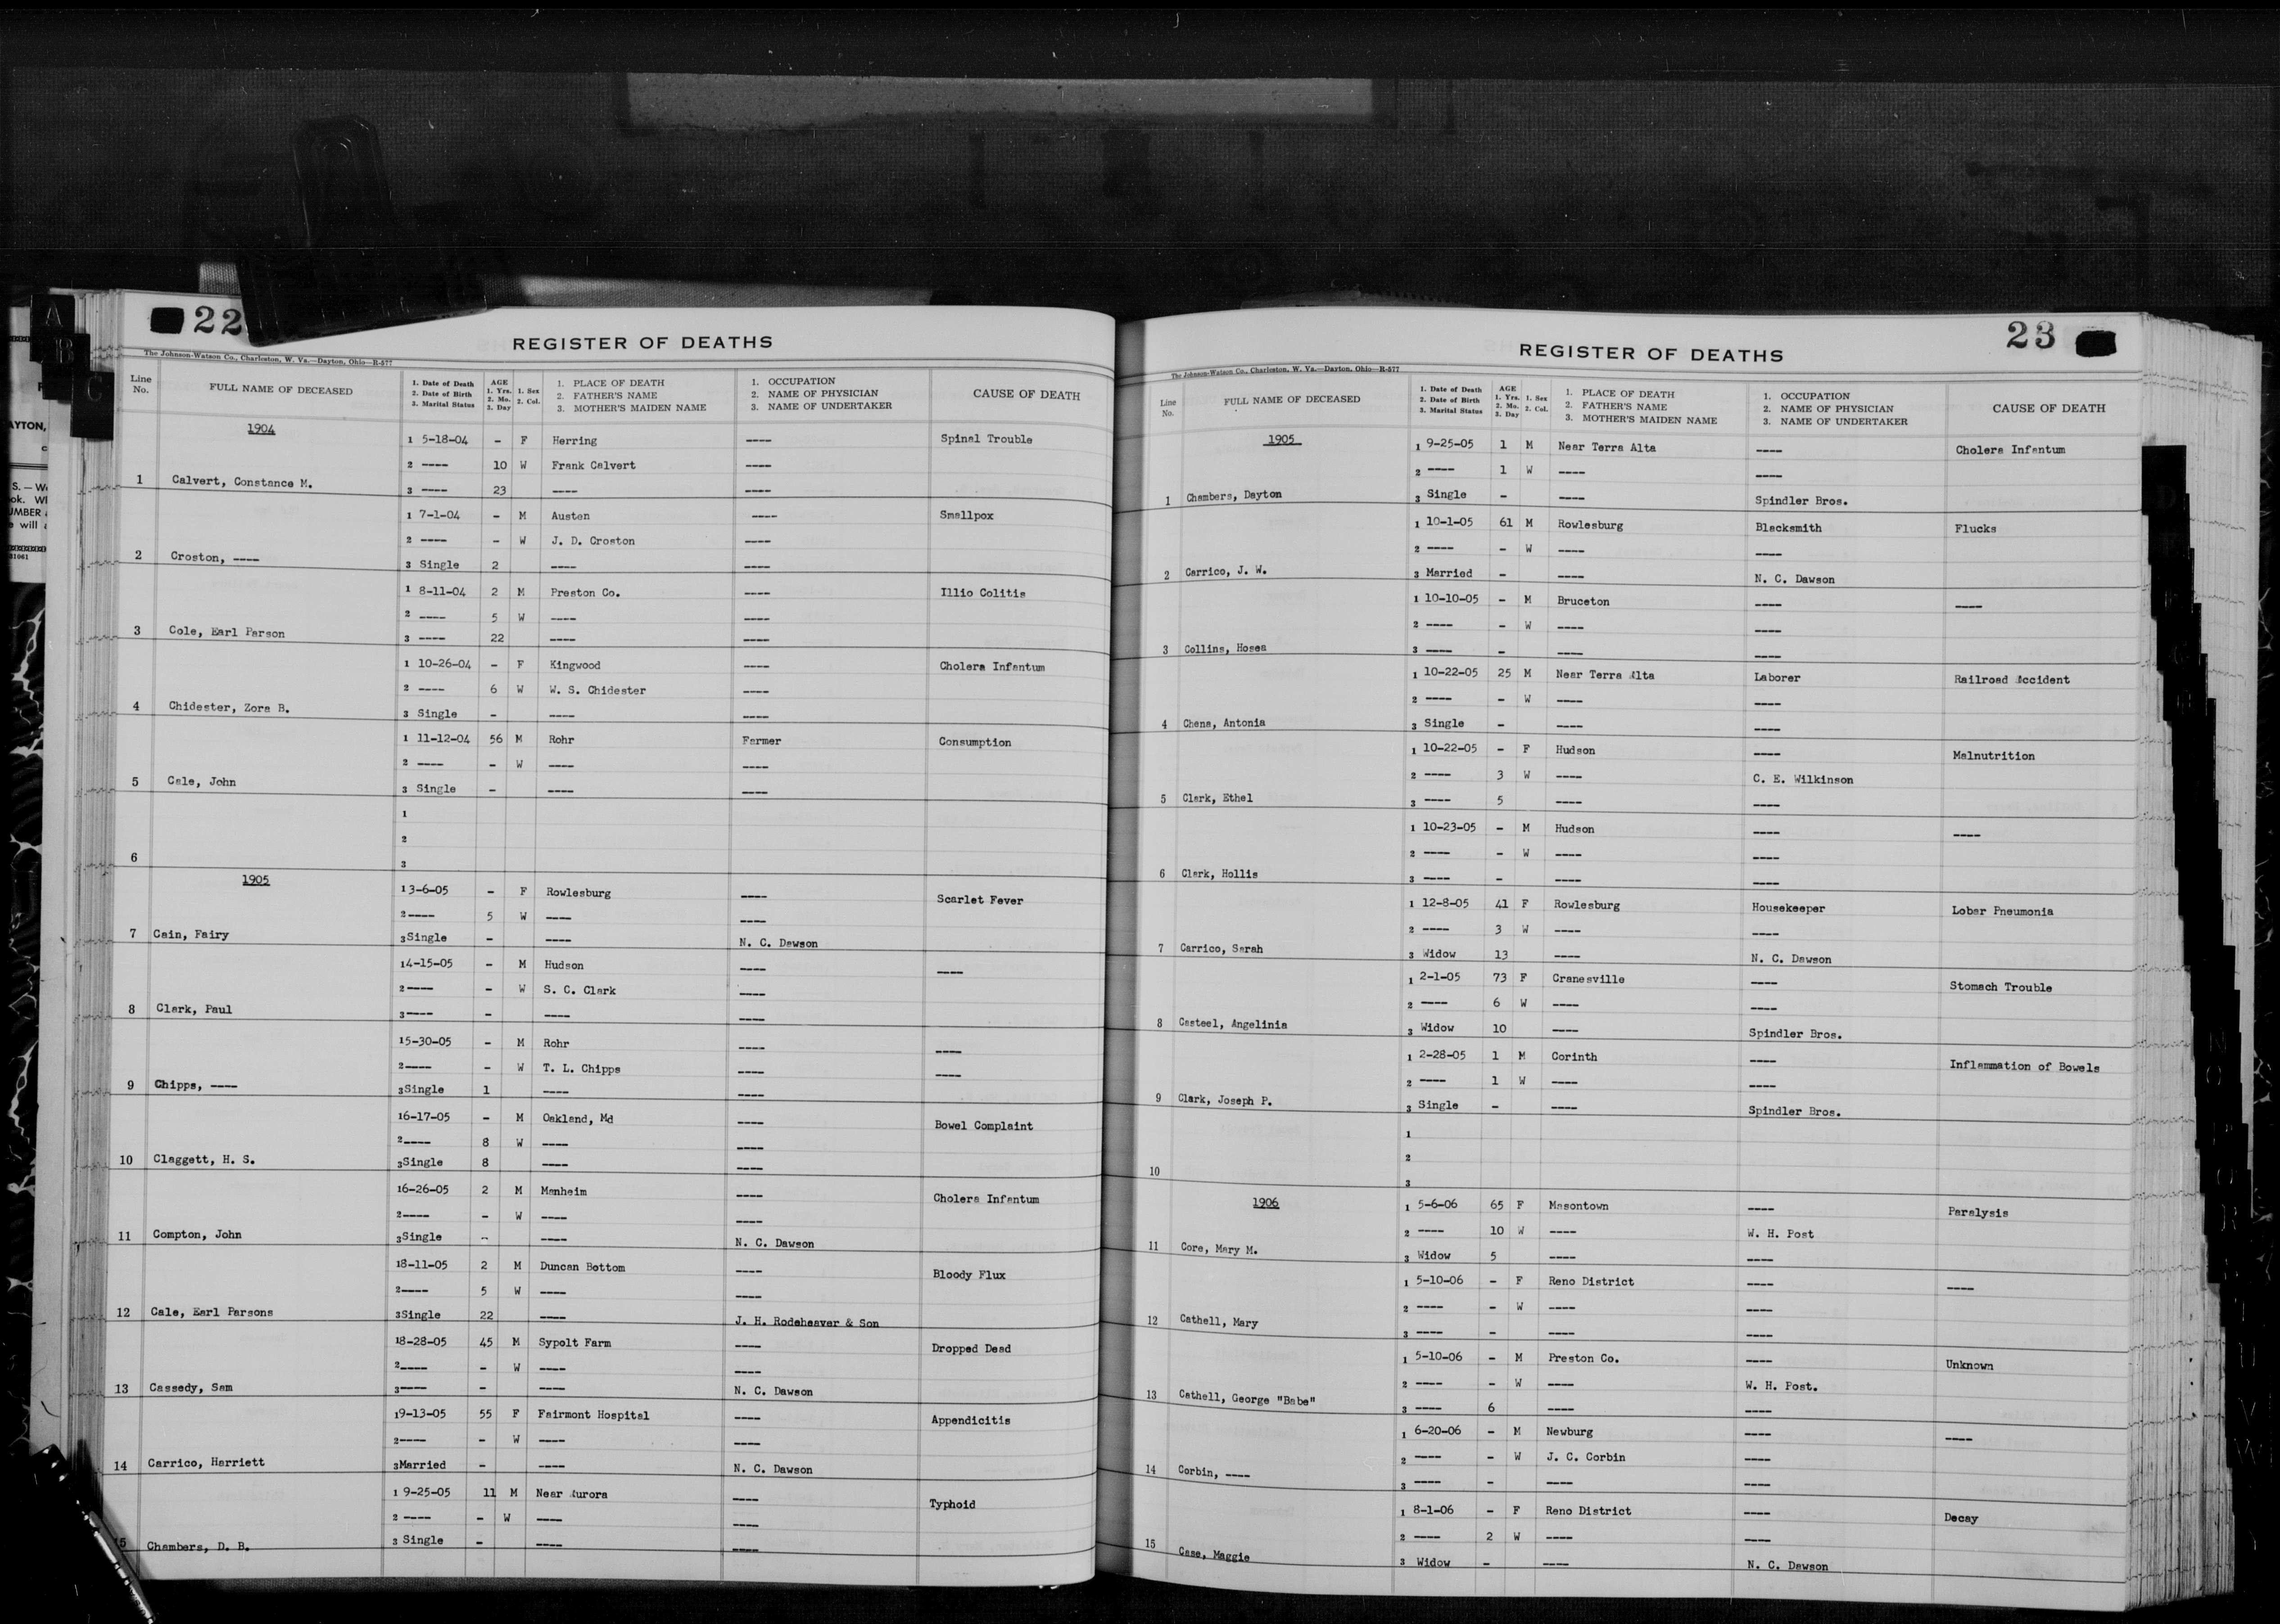 22
REGISTER OF DEATHS
The Johnson-Watson Co., Charleston, W. Va.—Dayton, Ohio—R-577
Line No. FULL NAME OF DECEASED 1. Date of Death 2. Date of Birth 3. Marital Status AGE 1. Yrs. 2. Mo. 3. Day 1. Sex 2. Col. 1. PLACE OF DEATH 2. FATHER'S NAME 3. MOTHER'S MAIDEN NAME 1. OCCUPATION 2. NAME OF PHYSICIAN 3. NAME OF UNDERTAKER CAUSE OF DEATH
1904
1 5-18-04 - F Herring ---- Spinal Trouble
2 ---- 10 W Frank Calvert ----
1 Calvert, Constance M. 3 ---- 23 ---- ----
1 7-1-04 - M Austen ---- Smallpox
2 ---- - W J. D. Croston ----
2 Croston, ---- 3 Single 2 ---- ----
1 8-11-04 2 M Preston Co. ---- Illio Colitis
2 ---- 5 W ---- ----
3 Cole, Earl Parson 3 ---- 22 ---- ----
1 10-26-04 - F Kingwood ---- Cholera Infantum
2 ---- 6 W W. S. Chidester ----
4 Chidester, Zora B. 3 Single - ---- ----
1 11-12-04 56 M Rohr Farmer Consumption
2 ---- - W ---- ----
5 Cale, John 3 Single - ---- ----
1
2
6 3
1905
1 3-6-05 - F Rowlesburg ---- Scarlet Fever
2 ---- 5 W ---- ----
7 Cain, Fairy 3 Single - ---- N. C. Dawson
1 4-15-05 - M Hudson ---- ----
2 ---- - W S. C. Clark ----
8 Clark, Paul 3 ---- - ---- ----
1 5-30-05 - M Rohr ---- ----
2 ---- - W T. L. Chipps ---- ----
9 Chipps, ---- 3 Single 1 ---- ----
1 6-17-05 - M Oakland, Md ---- Bowel Complaint
2 ---- 8 W ---- ----
10 Claggett, H. S. 3 Single 8 ---- ----
1 6-26-05 2 M Manheim ---- Cholera Infantum
2 ---- - W ---- ----
11 Compton, John 3 Single - ---- N. C. Dawson
1 8-11-05 2 M Duncan Bottom ---- Bloody Flux
2 ---- 5 W ---- ----
12 Cale, Earl Parsons 3 Single 22 ---- J. H. Rodeheaver & Son
1 8-28-05 45 M Sypolt Farm ---- Dropped Dead
2 ---- - W ---- ----
13 Cassedy, Sam 3 ---- - ---- N. C. Dawson
1 9-13-05 55 F Fairmont Hospital ---- Appendicitis
2 ---- - W ---- ----
14 Carrico, Harriett 3 Married - ---- N. C. Dawson
1 9-25-05 11 M Near Aurora ---- Typhoid
2 ---- - W ---- ----
15 Chambers, D. B. 3 Single - ---- ----
23
REGISTER OF DEATHS
The Johnson-Watson Co., Charleston, W. Va.—Dayton, Ohio—R-577
Line No. FULL NAME OF DECEASED 1. Date of Death 2. Date of Birth 3. Marital Status AGE 1. Yrs. 2. Mo. 3. Day 1. Sex 2. Col. 1. PLACE OF DEATH 2. FATHER'S NAME 3. MOTHER'S MAIDEN NAME 1. OCCUPATION 2. NAME OF PHYSICIAN 3. NAME OF UNDERTAKER CAUSE OF DEATH
1905
1 9-25-05 1 M Near Terra Alta ---- Cholera Infantum
2 ---- 1 W ---- ----
1 Chambers, Dayton 3 Single - ---- Spindler Bros.
1 10-1-05 61 M Rowlesburg Blacksmith Flucks
2 ---- - W ---- ----
2 Carrico, J. W. 3 Married - ---- N. C. Dawson
1 10-10-05 - M Bruceton ---- ----
2 ---- - W ---- ----
3 Collins, Hosea 3 ---- - ---- ----
1 10-22-05 25 M Near Terra Alta Laborer Railroad Accident
2 ---- - W ---- ----
4 Chena, Antonia 3 Single - ---- ----
1 10-22-05 - F Hudson ---- Malnutrition
2 ---- 3 W ---- C. E. Wilkinson
5 Clark, Ethel 3 ---- 5 ---- ----
1 10-23-05 - M Hudson ---- ----
2 ---- - W ---- ----
6 Clark, Hollis 3 ---- - ---- ----
1 12-8-05 41 F Rowlesburg Housekeeper Lobar Pneumonia
2 ---- 3 W ---- ----
7 Carrico, Sarah 3 Widow 13 ---- N. C. Dawson
1 2-1-05 73 F Cranesville ---- Stomach Trouble
2 ---- 6 W ---- ----
8 Casteel, Angelinia 3 Widow 10 ---- Spindler Bros.
1 2-28-05 1 M Corinth ---- Inflammation of Bowels
2 ---- 1 W ---- ----
9 Clark, Joseph P. 3 Single - ---- Spindler Bros.
1
2
10 3
1906
1 5-6-06 65 F Masontown ---- Paralysis
2 ---- 10 W ---- W. H. Post
11 Core, Mary M. 3 Widow 5 ---- ----
1 5-10-06 - F Reno District ---- ----
2 ---- - W ---- ----
12 Cathell, Mary 3 ---- - ---- ----
1 5-10-06 - M Preston Co. ---- Unknown
2 ---- - W ---- W. H. Post.
13 Cathell, George "Babe" 3 ---- 6 ---- ----
1 6-20-06 - M Newburg ---- ----
2 ---- - W J. C. Corbin ----
14 Corbin, ---- 3 ---- - ---- ----
1 8-1-06 - F Reno District ---- Decay
2 ---- 2 W ---- ----
15 Case, Maggie 3 Widow - ---- N. C. Dawson
A
B
C
D